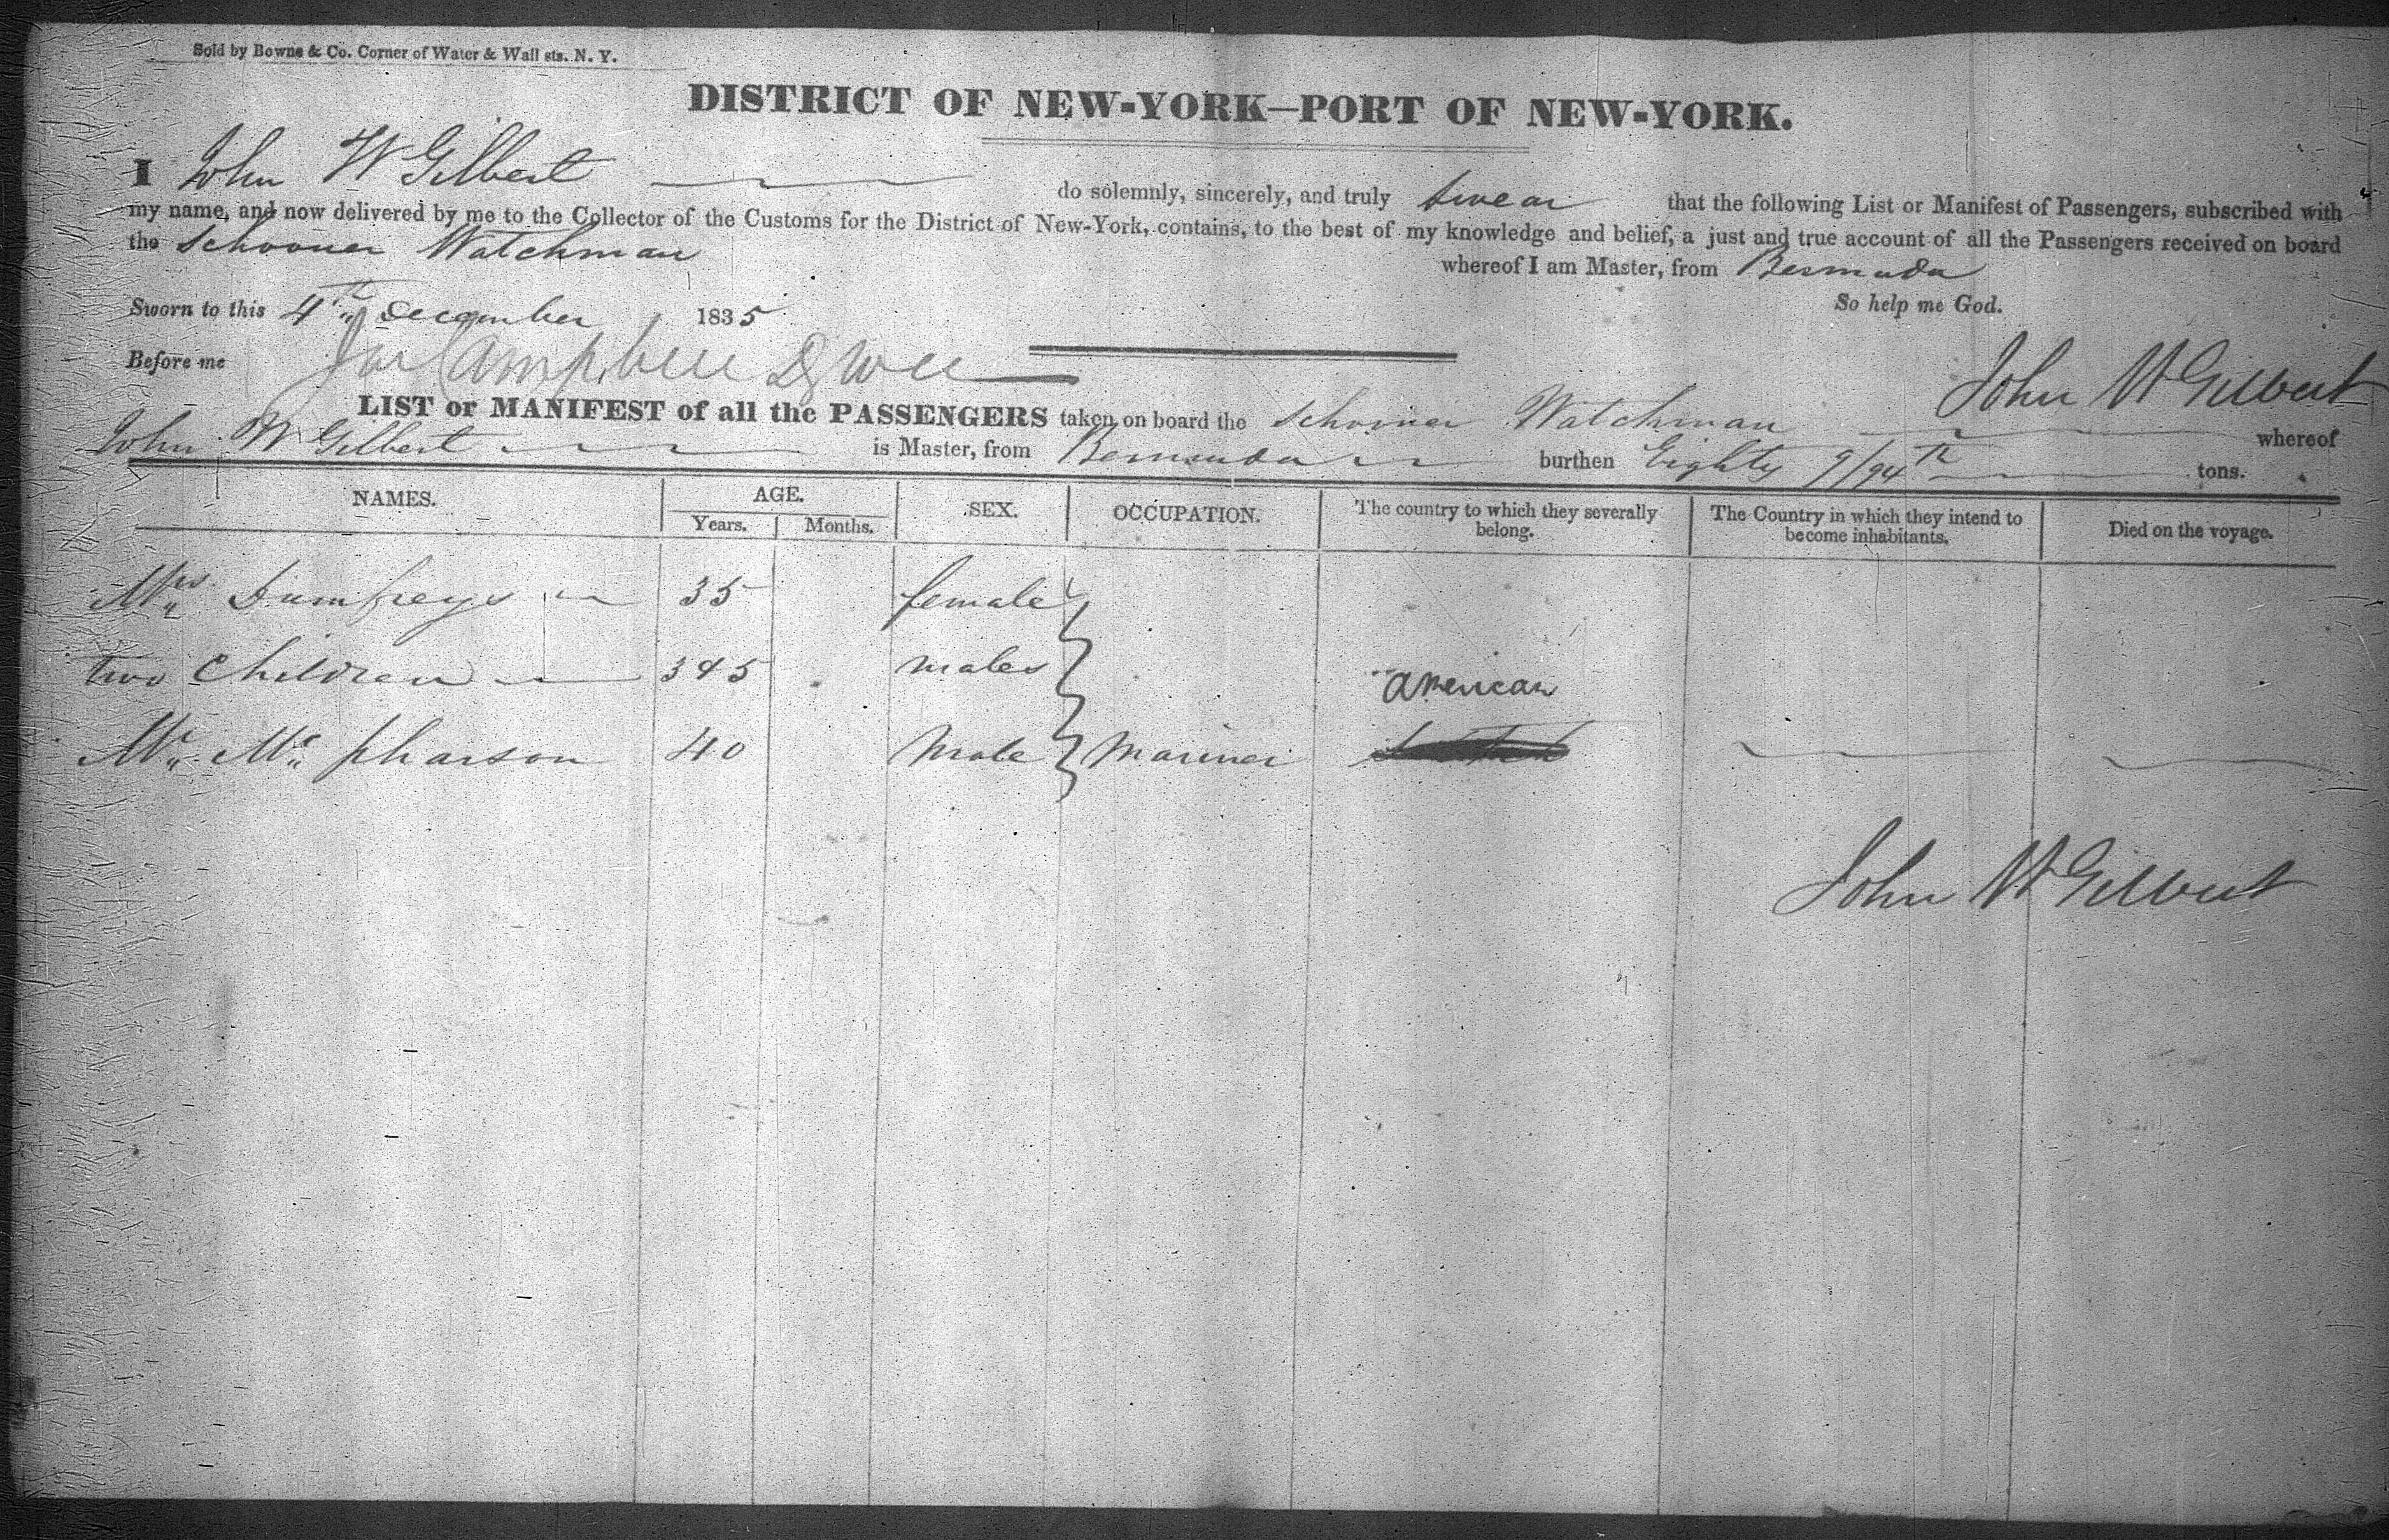 Sold by Bowne & Co. Corner of Water & Wall sts. N. Y.
DISTRICT OF NEW-YORK—PORT OF NEW-YORK.
I John W Gilbert do solemnly, sincerely, and truly swear that the following List or Manifest of Passengers, subscribed with
my name, and now delivered by me to the Collector of the Customs for the District of New-York, contains, to the best of my knowledge and belief, a just and true account of all the Passengers received on board
the Schooner Watchman whereof I am Master, from Bermuda
Sworn to this 4th December 1835 So help me God.
Before me Campbell
John W Gilbert
LIST or MANIFEST of all the PASSENGERS taken on board the Schooner Watchman whereof
John W Gilbert is Master, from Bermuda burthen Eighty 9/94th tons.
NAMES. AGE. SEX. OCCUPATION. The country to which they severally belong. The Country in which they intend to become inhabitants. Died on the voyage.
Years. Months.
Mrs 35 female
two Children 3 & 5 males American
Mr Mc pharson 40 Male Mariner
John W Gilbert